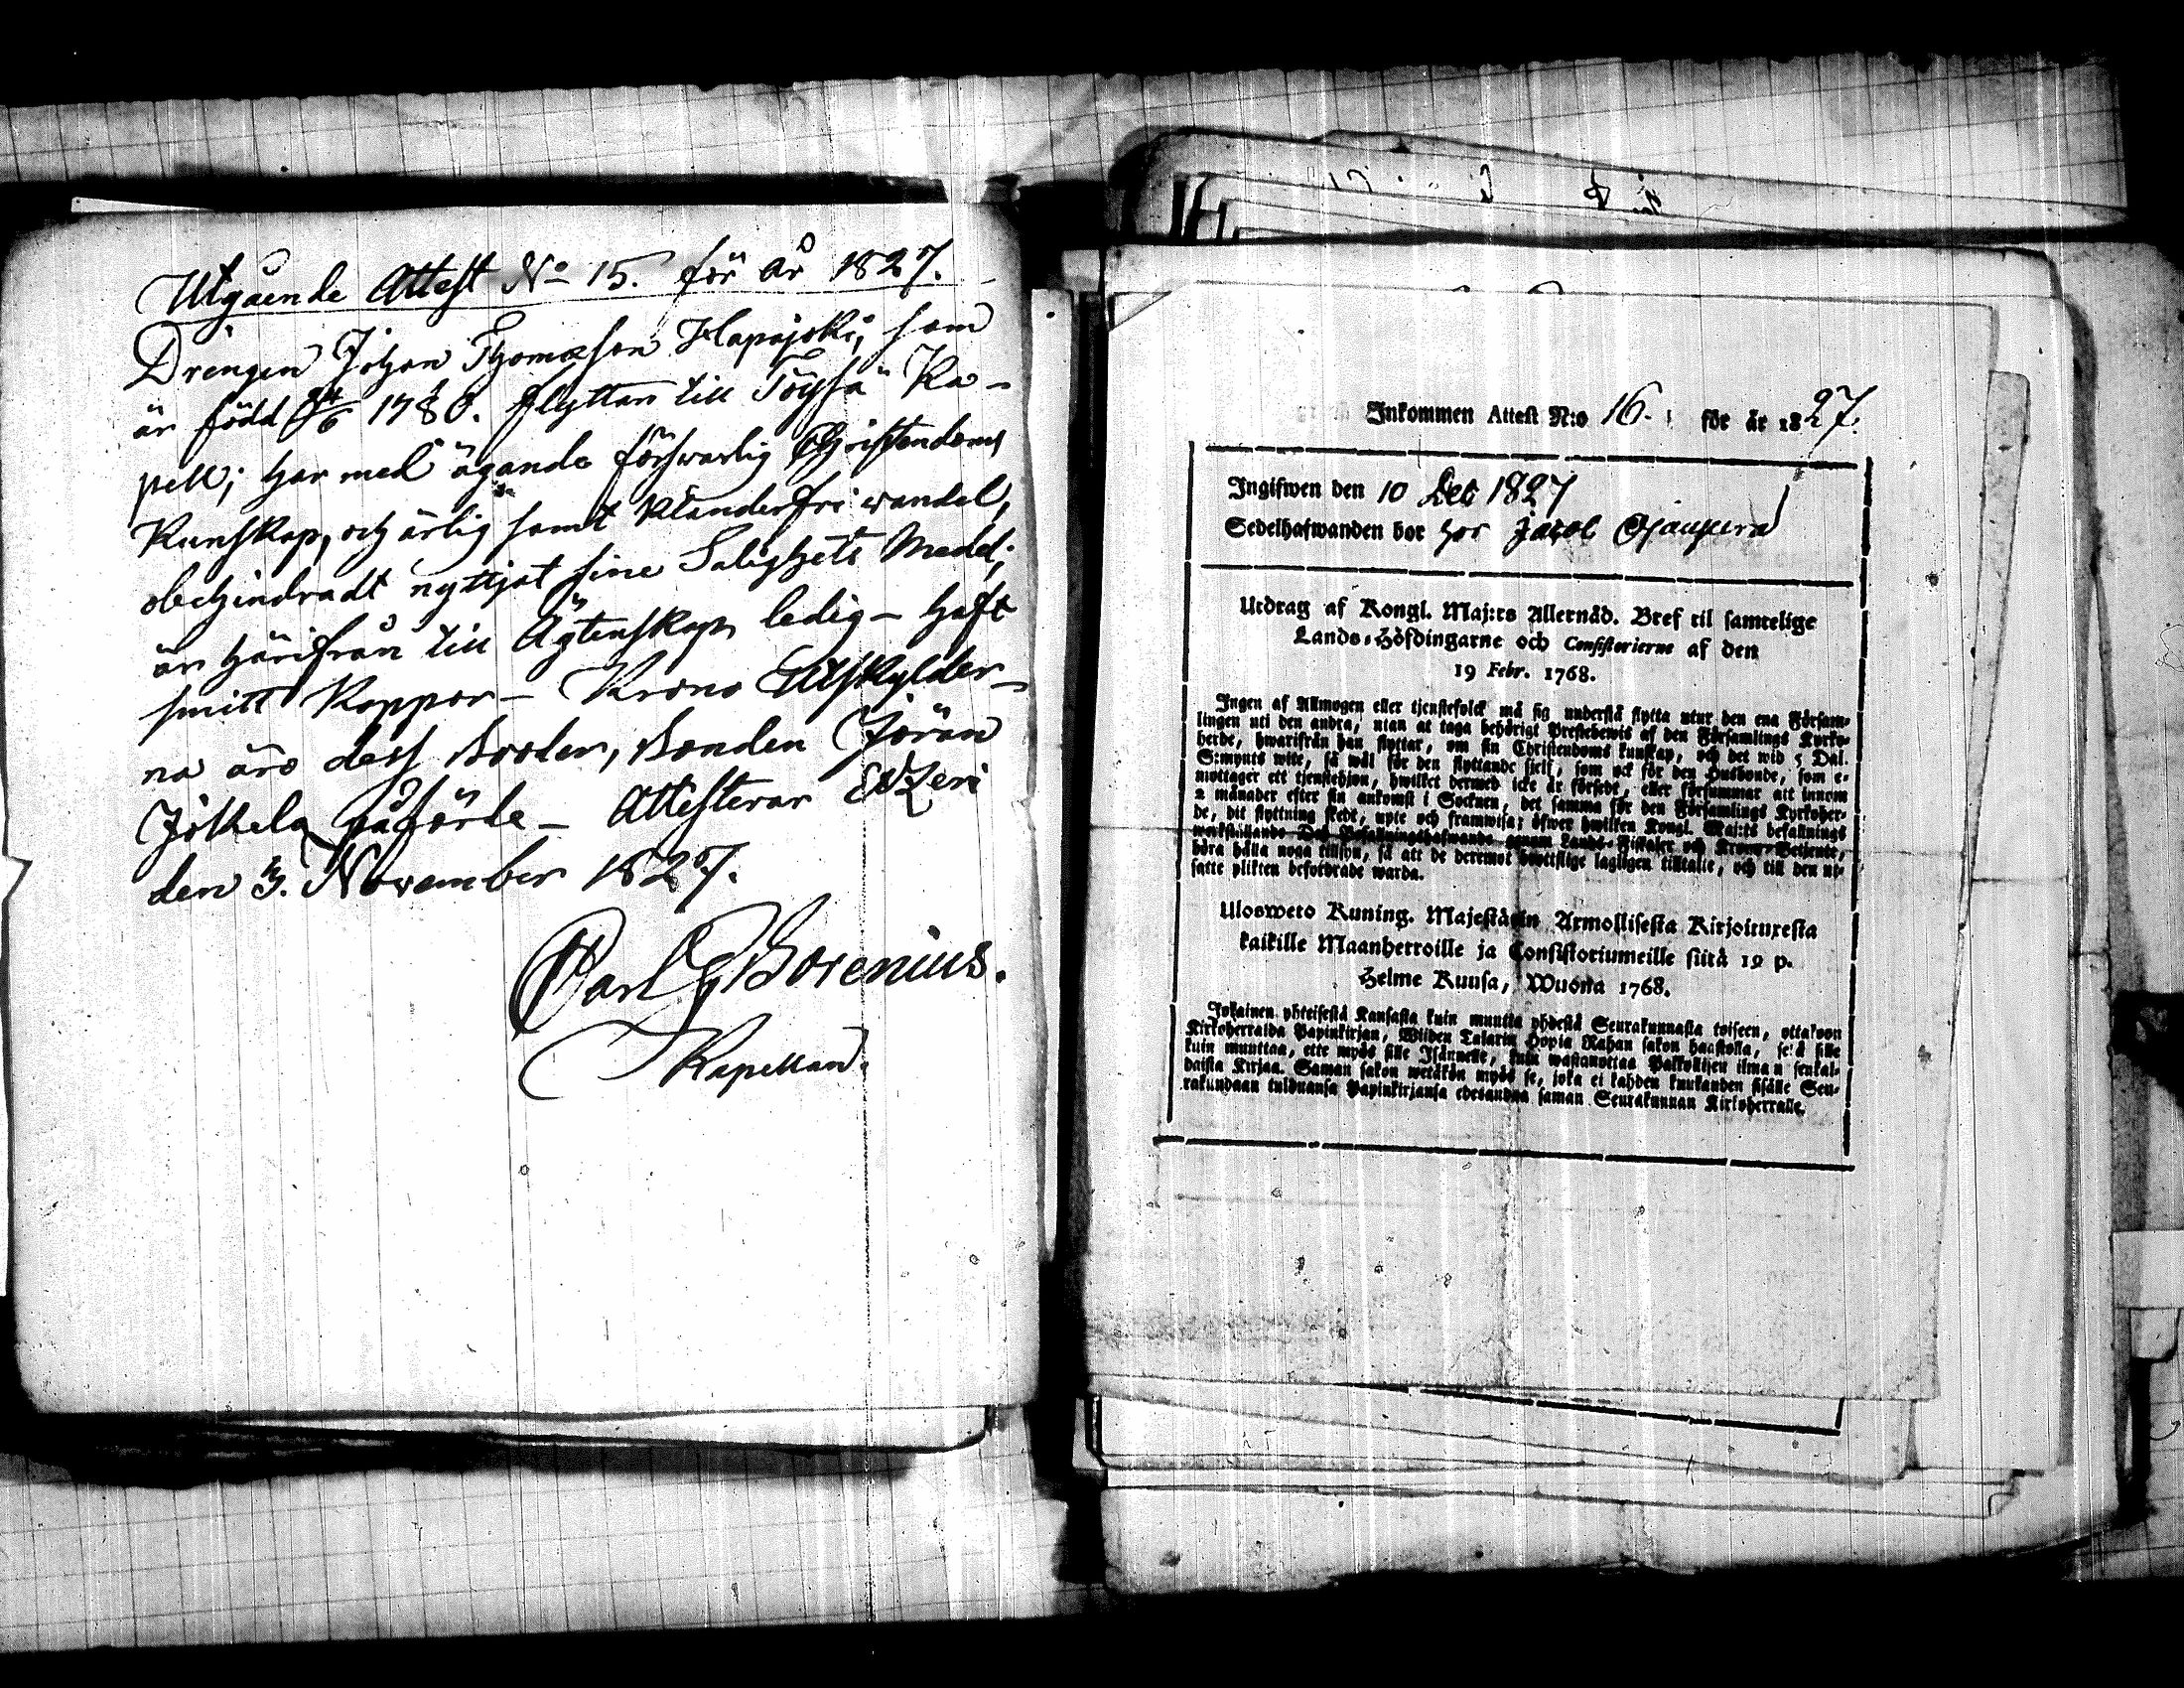 Utgående Attest No 15. för År 1827.
Drengen Johan Thomasson Hapajoki, som
är född 24/6 1780. flyttar till Töysä Ka-
pell; har med ägande förswarlig Christendoms
Kunskap, och ärlig samt klanderfri wandel,
obehindradt nyttjat sine Salighets Medel;
är härifrån till Ägtenskap ledig – haft
smitt Koppor – Krono Utskylder-
na äro dess Broder, Bonden Jöran
Jokela påförde – Attesterar Etzeri
den 3. November 1827.
Carl G Borenius.
Kapellan.
Inkommen Attest N:o 16. för år 1827.
Ingifwen den 10 Dec 1827
Sedelhafwanden bor hos Jacob
Utdrag af Kongl. Maj:ts Allernåd. Bref til samtelige
Lands-Höfdingarne och Consistorierne af den
19 Febr. 1768.
Ingen af Allmogen eller tjenstefolck må sig understå flytta utur den ena Försam-
lingen uti den andra, utan at taga behörigt Prestebewis af den Församlings Kyrko-
herde, hwarifrån han flyttar, om sin Christendoms kunskap, och det wid 5 Dal.
S:mynts wite, så wäl för den flyttande sielf, som ock för den Husbonde, som e-
mottager ett tjenstehjon, hwilket dermed icke är försedt, eller försummar att innom
2 månader efter sin ankomst i Socknen, det samma för den Församlings Kyrkoher-
de, dit flyttning skedt, upte och framwisa; öfwer hwilken Kongl. Maj:ts befallnings
werkställande Dess Befallningshafwande genom Lands-Fiskaler och Krono-Betjente,
böra hålla noga tillsyn, så att de deremot brottslige lagligen tilltalte, och till den ut-
satte plikten befordrade warda.
Ulosweto Kuning. Majestätin Armollisesta Kirjoituxesta
kaikille Maanherroille ja Consistoriumeille siitä 19 p.
Helme Kuusa, Wuona 1768.
Jokainen yhteisestä Kansasta kuin muutta yhdestä Seurakunnasta toiseen, ottakoon
Kirkoherralda Papinkirjan, Wiiden Talarin Hopia Rahan sakon haastolla, sekä sille
kuin muuttaa, ette myös sille Isännelle, kuin wastanottaa Palkollisen ilman senkal-
daista Kirjaa. Saman sakon wetäkön myös se, joka ei kahden kuukauden sisälle Seu-
rakundaan tulduansa Papinkirjansa edesanna saman Seurakunnan Kirkoherralle.